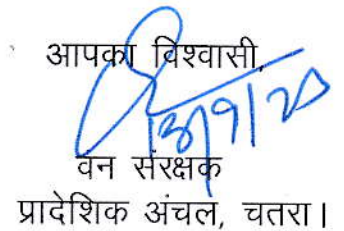 आपका विश्वासी,
वन संरक्षक
प्रादेशिक अंचल, चतरा।